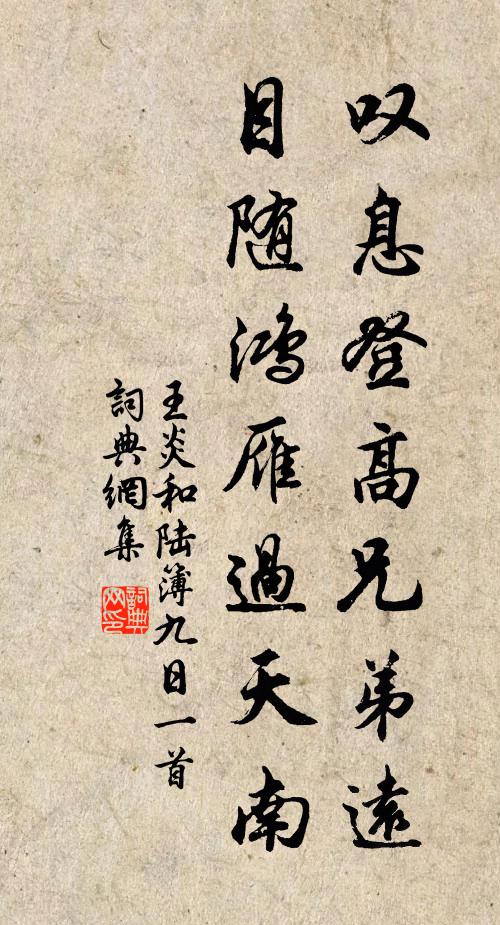 叹息登高兄弟遠
目随鸿雁過天南
王炎和陆簿九日一首
詞典網集
詞典网印